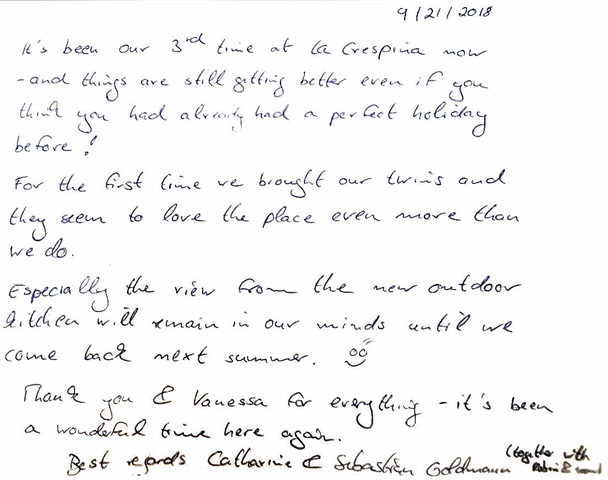 9/21/2018
It's been our 3rd time at La Crespina now
-and things are still getting better even if you
think you had already had a perfect holiday
before!
For the first time we brought our twins and
they seem to love the place even more than
we do.
Especially the view from the new outdoor
kitchen will remain in our minds until we
come back next summer.
Thank you & Vanessa for everything - it's been
a wonderful time here again.
Best regards Catharine & Sebastian Goldmann (together with
Robin &